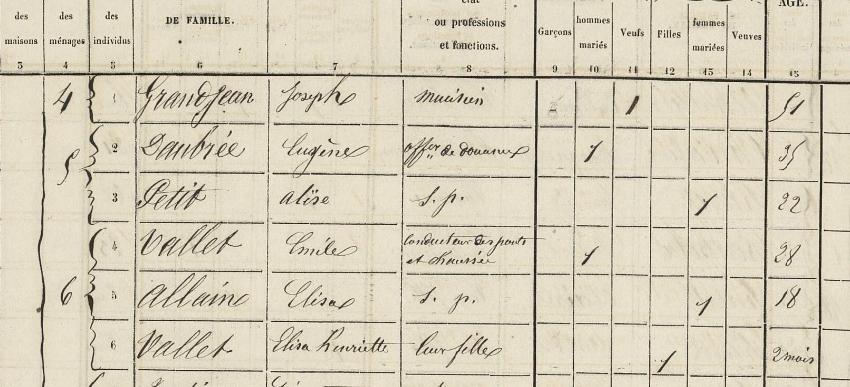 des des des DE FAMILLE. état hommes femmes AGE.
maisons ménages individus ou professions Garçons mariés Veufs Filles mariées Veuves
et fonctions.
3 4 5 6 7 8 9 10 11 12 13 14 15
4 1 Grandjean Joseph musicien 1 51
5 2 Daubrée Eugène offer de douanes 1 35
3 Petit alise s. p. 1 22
6 4 Vallet Emile Conducteur des ponts 1 28
et chaussée
5 Allain Elisa s. p. 1 18
6 Vallet Elisa Henriette leur fille 1 2 mois